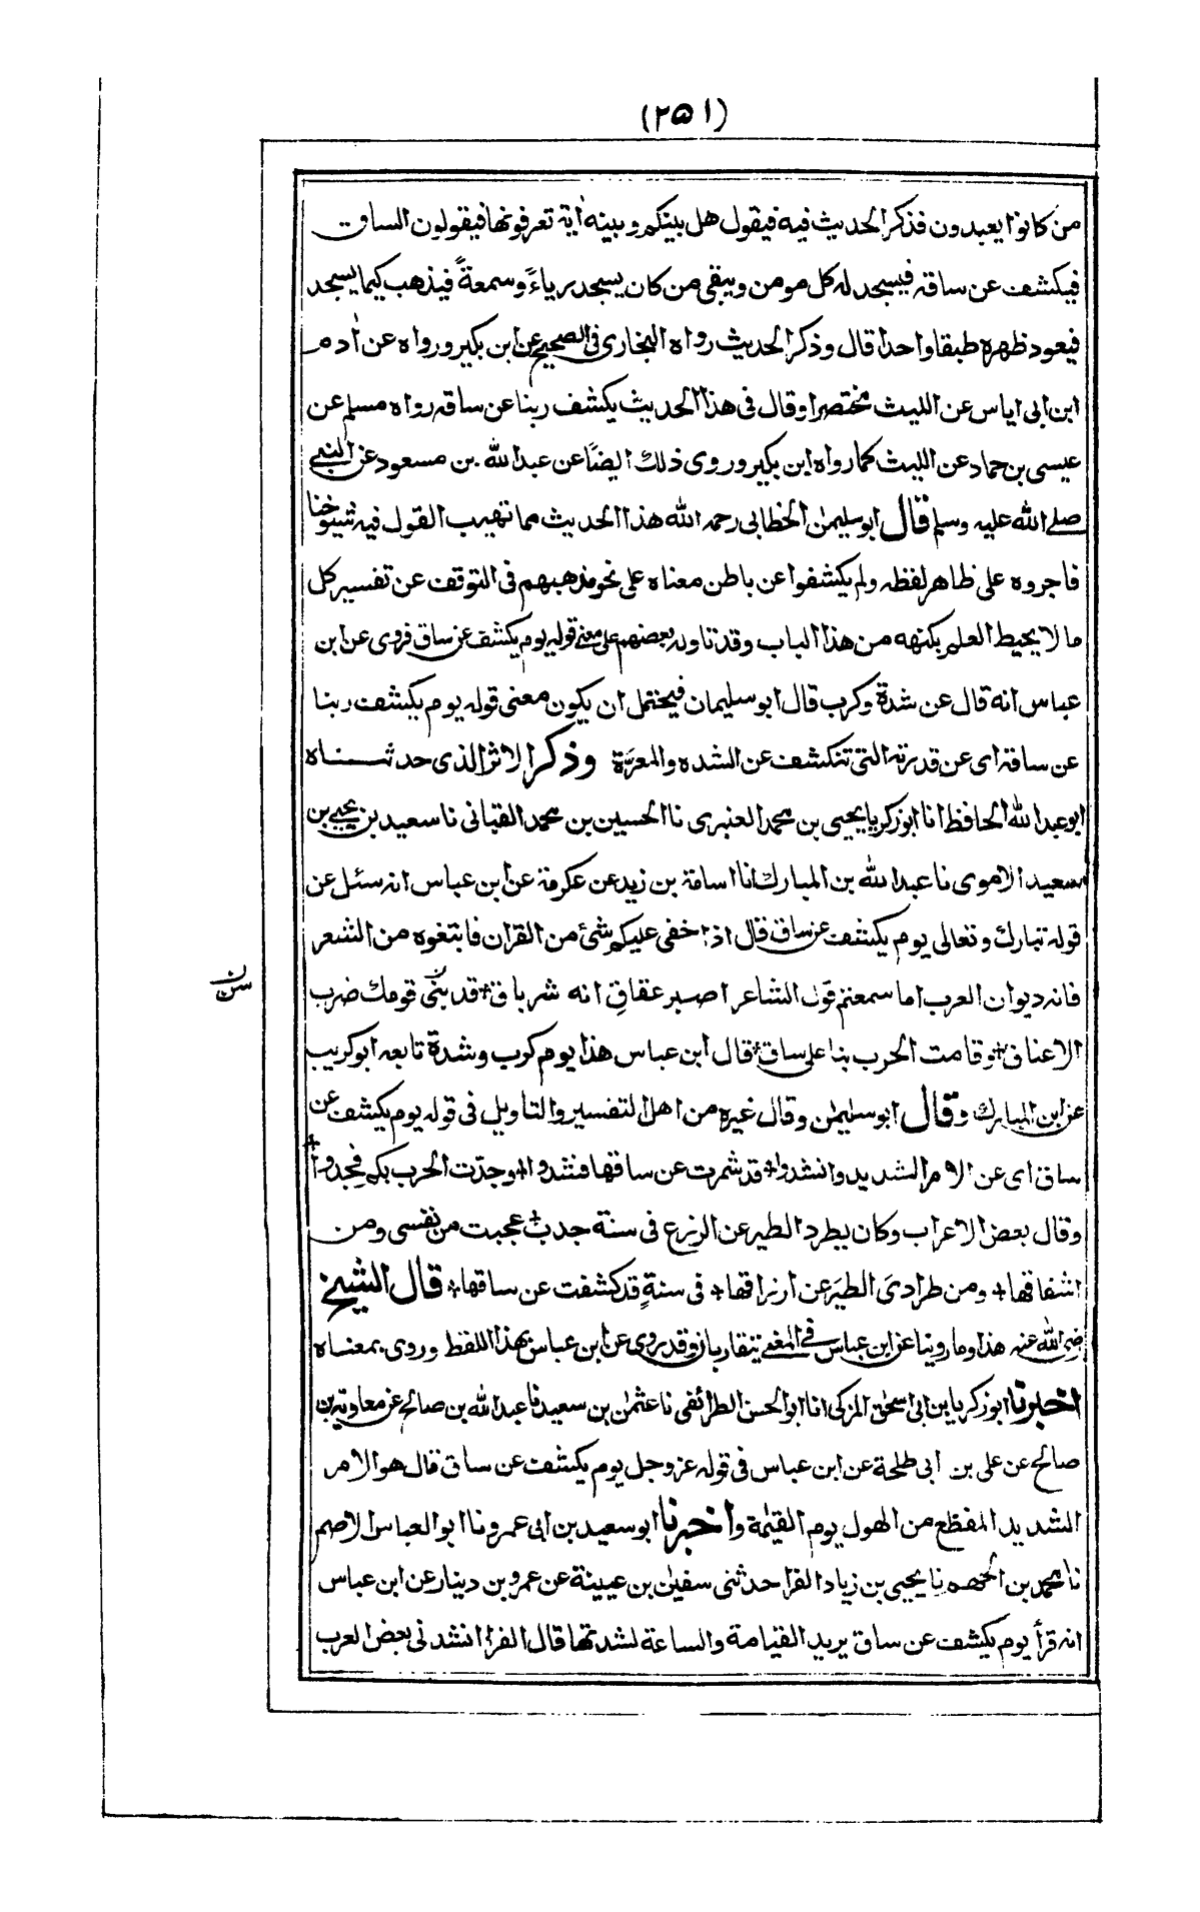 (٢٥١)
من كانوا يعبدون فذكر الحديث فيه فيقول هل بينكم وبينه اٰية تعرفونها فيقولون الساق
فيكشف عن ساقه فيسجد له كل مومن ويبقى من كان يسجد رياءً وسمعةً فيذهب كيما يسجد
فيعود ظهره طبقا واحدا قال وذكر الحديث رواه البخارى فى الصحيح عن ابن بكير ورواه عن اٰدم
ابن ابى اياس عن الليث مختصرا وقال فى هذا الحديث يكشف ربنا عن ساقه رواه مسلم عن
عيسى بن حماد عن الليث كما رواه ابن بكير وروى ذلك ايضًا عن عبد الله بن مسعود عن النبى
صلے الله عليه وسلم قال ابو سليمٰن الخطابى رحمه الله هذا الحديث مما تهيب القول فيه شيوخنا
فاجروه على ظاهر لفظه ولم يكشفوا عن باطن معناه على نحو مذهبهم فى التوقف عن تفسير كل
ما لا يحيط العلم بكنهه من هذا الباب وقد تاوله بعضهم على معنى قوله يوم يكشف عن ساق فروى عن ابن
عباس انه قال عن شدة وكرب قال ابو سليمان فيحتمل ان يكون معنى قوله يوم يكشف ربنا
عن ساقه اى عن قدرته التى تنكشف عن الشده والمعرّة وذكر الاثر الذى حدثناه
ابو عبد الله الحافظ انا ابو زكريا يحيى بن محمد العنبرى نا الحسين بن محمد القبانى نا سعيد بن يحيى بن
سعيد الاموى نا عبد الله بن المبارك انا اسامة بن زيد عن عكرمة عن ابن عباس انه سئل عن
قوله تبارك وتعالى يوم يكشف عن ساق قال اذا خفى عليكم شئ من القران فابتغوه من الشعر
فانه ديوان العرب اما سمعتم قول الشاعر اصبر عقاقِ انه شر باق + قد بنى قومك ضرب
سن ن
الاعناق + وقامت الحرب بنا على ساق + قال ابن عباس هذا يوم كرب وشدة تابعه ابو كريب
عن ابن المبارك وقال ابو سليمٰن وقال غيره من اهل التفسير والتاويل فى قوله يوم يكشف عن
ساق اى عن الامر الشديد وانشدوا + قد شمرت عن ساقها فشدوا + وجدّت الحرب بكم فجدوا +
وقال بعض الاعراب وكان يطرد الطير عن الزرع فى سنة جدب + عجبت من نفسى ومن
اشفاقها + ومن طرادىَ الطيرَ عن ارزاقها + فى سنةٍ قد كشفت عن ساقها + قال الشيخ
رضى الله عنه هذا وما روينا عن ابن عباس فى المعنى يتقاربان وقد روى عن ابن عباس بهذا اللفظ وروى بمعناه
اخبرنا ابو زكريا بن ابى اسحٰق المزكى انا ابو الحسن الطرائفى نا عثمٰن بن سعيد نا عبد الله بن صالح عن معاوية بن
صالح عن على بن ابى طلحة عن ابن عباس فى قوله عز وجل يوم يكشف عن ساق قال هو الامر
الشديد المفظع من الهول يوم القيٰمة واخبرنا ابو سعيد بن ابى عمرو نا ابو العباس الاصم
نا محمد بن الجهم نا يحيى بن زياد الفرا حدثنى سفيٰن بن عيينة عن عمرو بن دينار عن ابن عباس
انه قرأ يوم يكشف عن ساق يريد القيامة والساعة لشدتها قال الفرا انشدنى بعض العرب